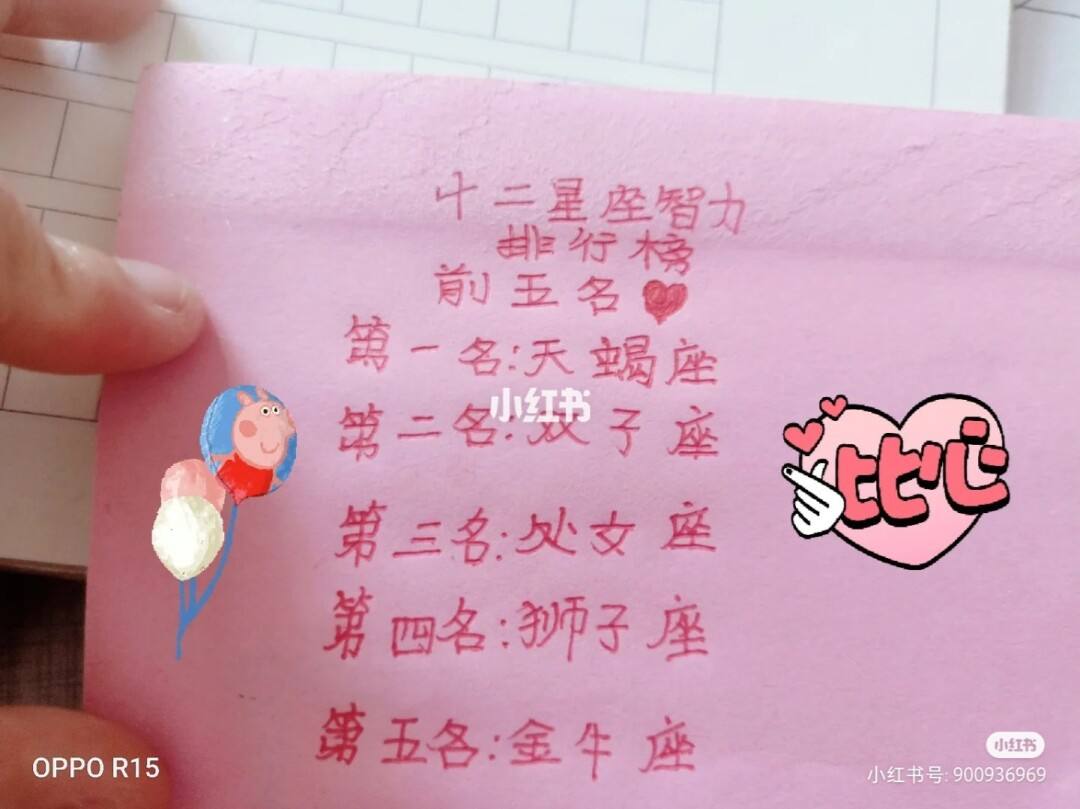 十二星座智力
排行榜
前五名
第一名:天蝎座
小红书
第二名:双子座
比心
第三名:处女座
第四名:狮子座
第五名:金牛座
小红书
OPPO R15
小红书号: 900936969